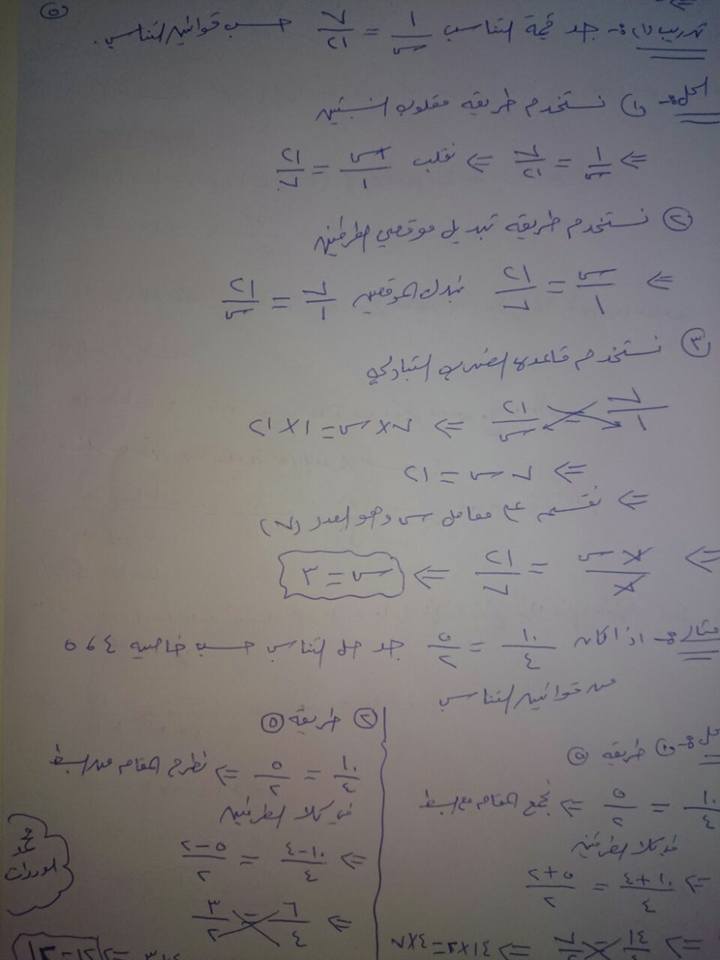 ٥
تدريب (١) :- جد قيمة التناسب ١/س = ٧/٢١ حسب قوانين التناسب.
الحل :- ① نستخدم طريقة مقلوب النسبتين
⇐ ١/س = ٧/٢١ ⇐ نقلب س/١ = ٢١/٧
② نستخدم طريقة تبديل موقعي الطرفين
⇐ س/١ = ٢١/٧ نبدل الموقعين ٧/١ = ٢١/س
③ نستخدم قاعدة الضرب التبادلي
٧/١ = ٢١/س ⇐ ٧×س = ١×٢١
⇐ ٧س = ٢١
⇐ نقسم على معامل س وهو العدد (٧)
⇐ ٧س/٧ = ٢١/٧ ⇐ س = ٣
مثال :- اذا كان ١٠/٤ = ٥/٢ جد حل التناسب حسب خاصية ٤ و ٥
من قوانين التناسب
الحل :- ① طريقة
١٠/٤ = ٥/٢ ⇐ نجمع المقام مع البسط
في كلا الطرفين
⇐ ١٠+٤/٤ = ٥+٢/٢
⇐ ١٤/٤ = ٧/٢ ⇐ ١٤×٢ = ٤×٧
② طريقة ⑤
١٠/٤ = ٥/٢ ⇐ نطرح المقام من البسط
في كلا الطرفين
⇐ ١٠-٤/٤ = ٥-٢/٢
⇐ ٦/٤ = ٣/٢
١٢=١٢
محمد
الوردات